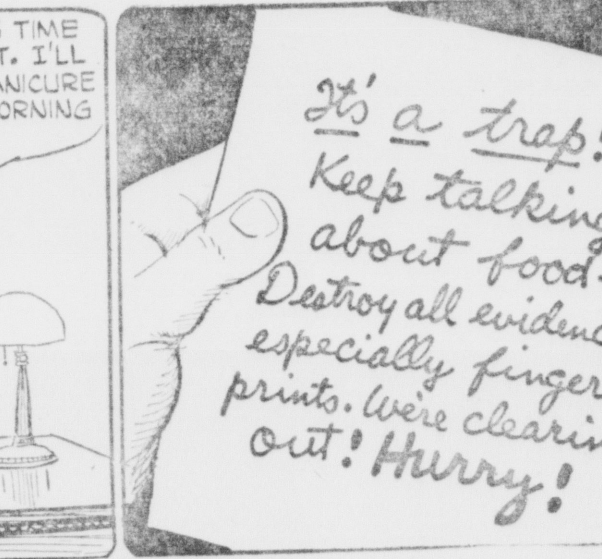 TIME
I'LL
IT'S a trap!
Keep talking
about food.
Destroy all evidenc
especially finger
prints. We're clearin
out! Hurry!